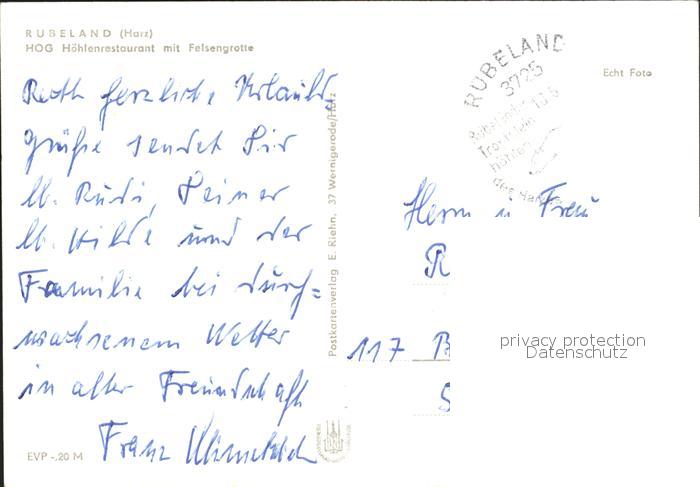 RUBELAND (Harz)
HOG Höhlenrestaurant mit Felsengrotte
Echt Foto
Recht herzliche Urlaubs-
grüße sendet Dir
lb. Rudi, Deiner
lb. Hilde und der
Familie bei durch=
wachsenem Wetter
in alter Freundschaft
Franz
EVP -,20 M
Postkartenverlag E. Riehn, 37 Wernigerode/Harz
RUBELAND
3725
Rübeländer
Tropfstein
höhlen
des Harzes
Herrn u Frau
R
117 B
S
privacy protection
Datenschutz